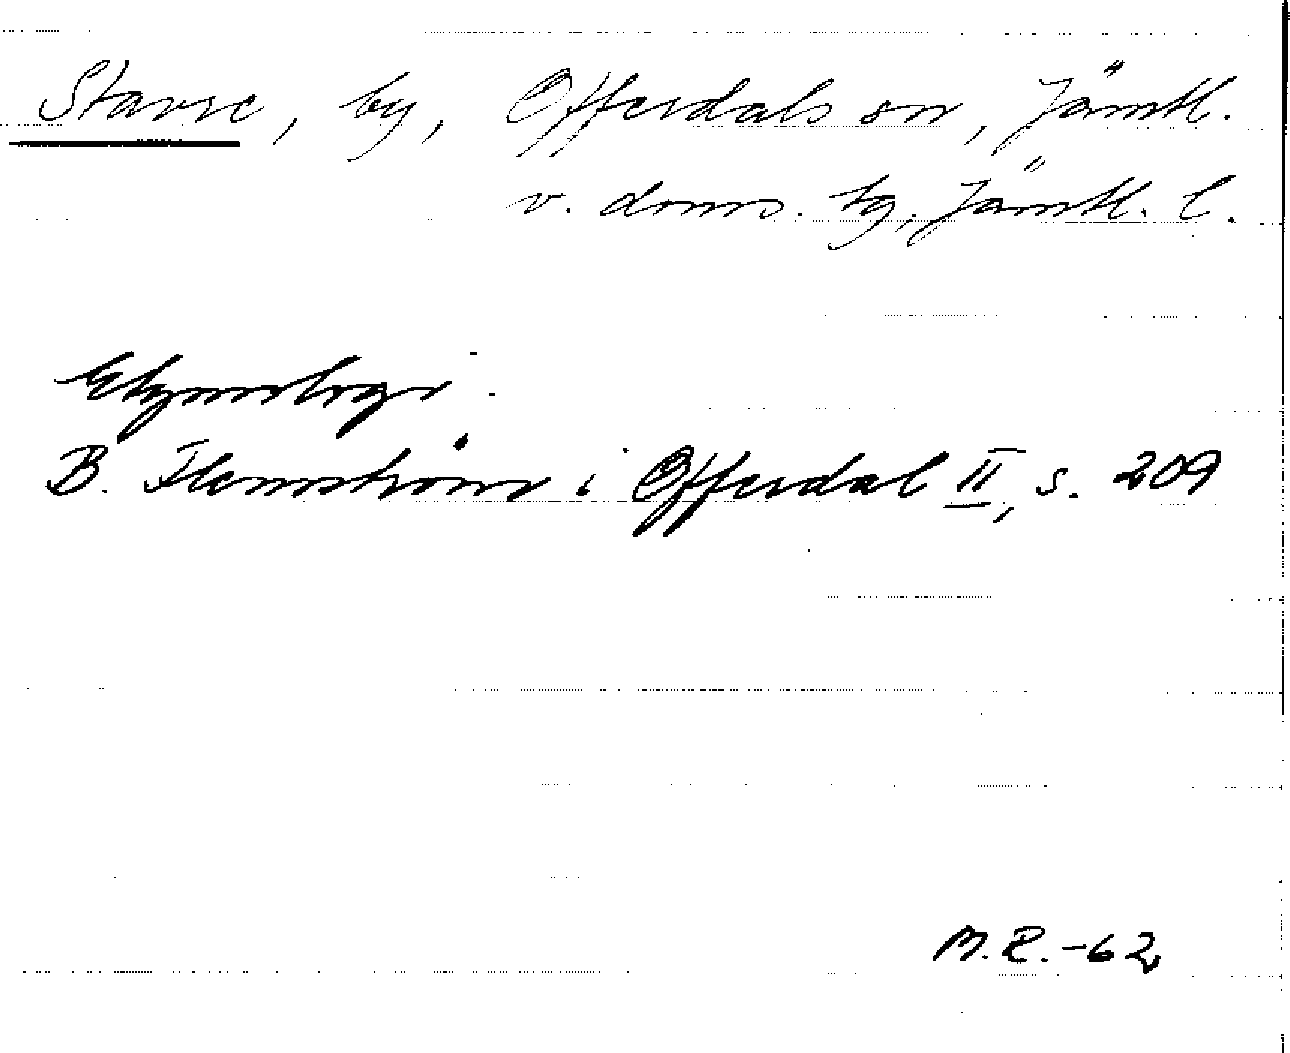 Stavre, by, Offerdals sn, Jämtl.
v. doms. tg, Jämtl. l.
Etymologi.
B. Flemström i Offerdal II, s. 209
M.R.-62